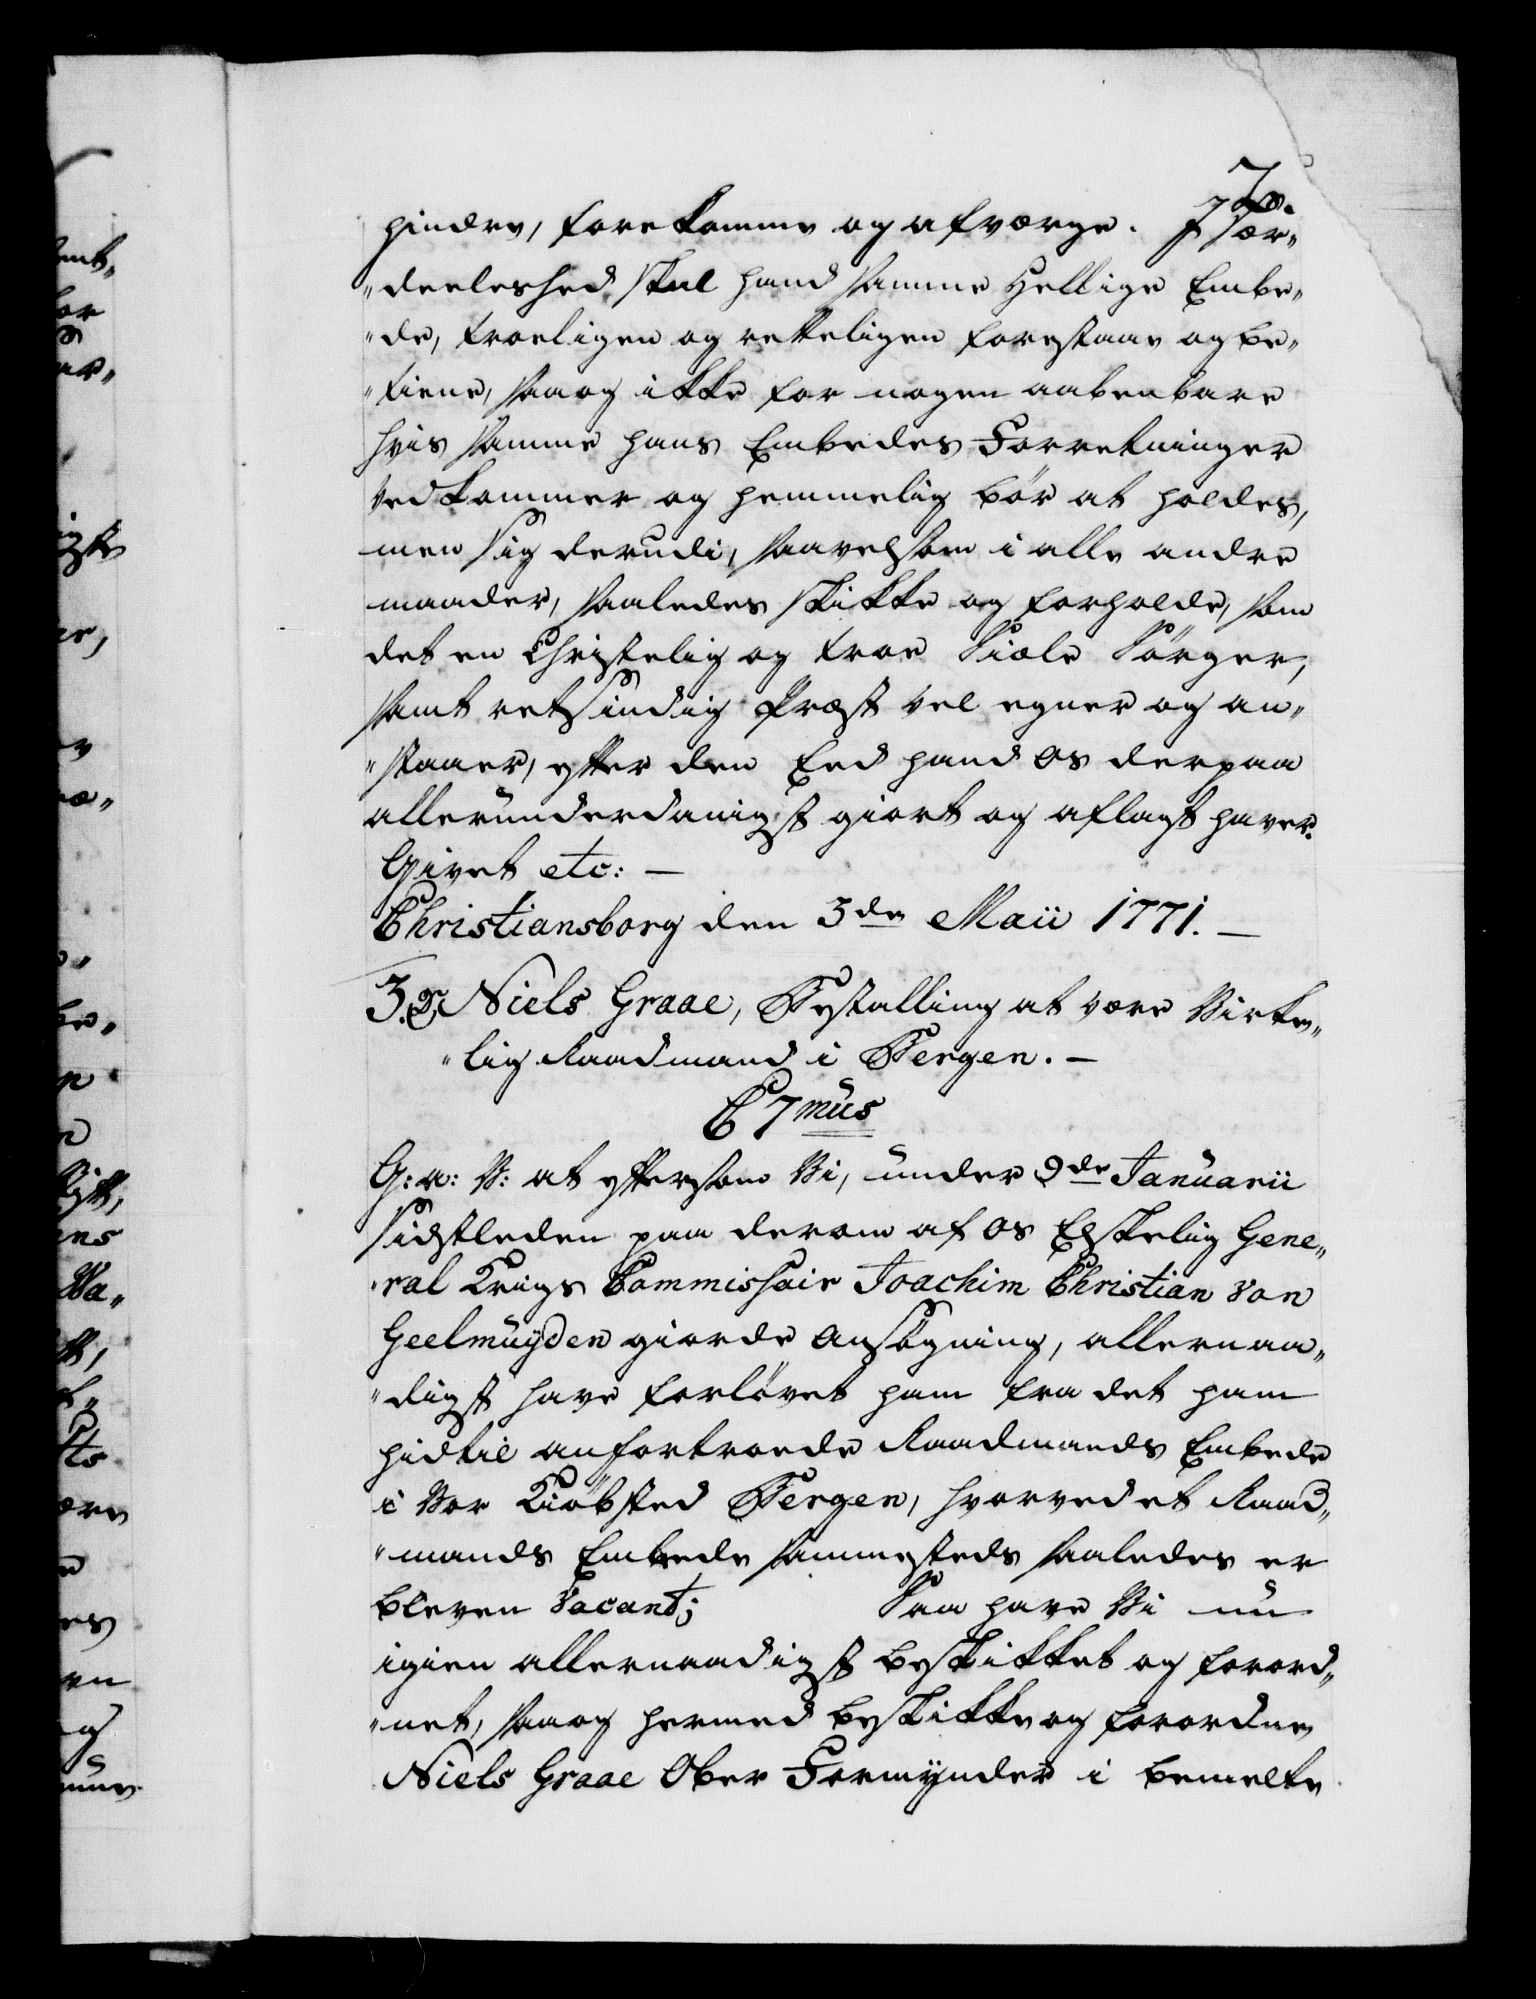 7
hindre, forekomme og afværge. J Sær„
„deeleshed skal hand samme Hellige Embe„
„de, troeligen og retteligen forestaae og be„
„tiene, saa og ikke for nogen aabenbare
hvis samme hans Embedes Forretninger
vedkommer og hemmelig bör at holdes,
men sig derudi, saavelsom i alle andre
maader, saaledes skikke og forholde, som
det en Christelig og troe Siæle Sörger,
samt retsindig Præst vel egner og an„
„staaer, efter den Eed hand os derpaa
allerunderdanigst giort og aflagt haver.
Givet etc: —
Christiansborg den 3de Maii 1771. —
3. Niels Graae, Bestalling at være Virke„
„lig Raadmand i Bergen. —
C 7mus
G: a: V: at eftersom Vi, under 9de Januarii
sidstleden paa derom af os Elskelig Gene„
„ral Krigs Commissair Joachim Christian von
Geelmuyden giorde Ansögning, allernaa„
„digst have forlövet ham fra det ham
hidtil anfortroede Raadmands Embede
i Vor Kiöbsted Bergen, hvorved et Raad„
„mands Embede sammesteds saaledes er
bleven Vacant; Saa have Vi nu
igien allernaadigst beskikket og forord„
„net, saa og hermed beskikke og forordne
Niels Graae Ober Formynder i bemelte